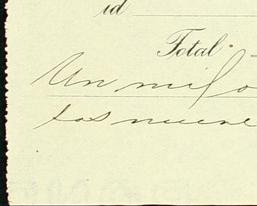 id
Total
Un mil o
tos nueve